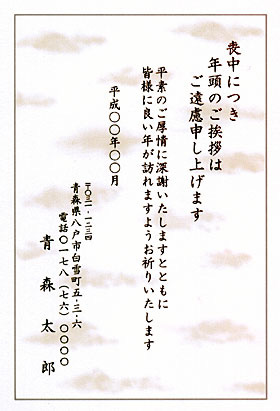 喪中につき
年頭のご挨拶は
ご遠慮申し上げます
平素のご厚情に深謝いたしますとともに
皆様に良い年が訪れますようお祈りいたします
平成〇〇年〇〇月
〒〇三一-一二三四
青森県八戸市白雪町五-三-六
電話〇一七八（七六）〇〇〇〇
青森太郎